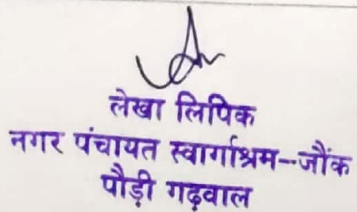 लेखा लिपिक
नगर पंचायत स्वार्गाश्रम--जौंक
पौड़ी गढ़वाल